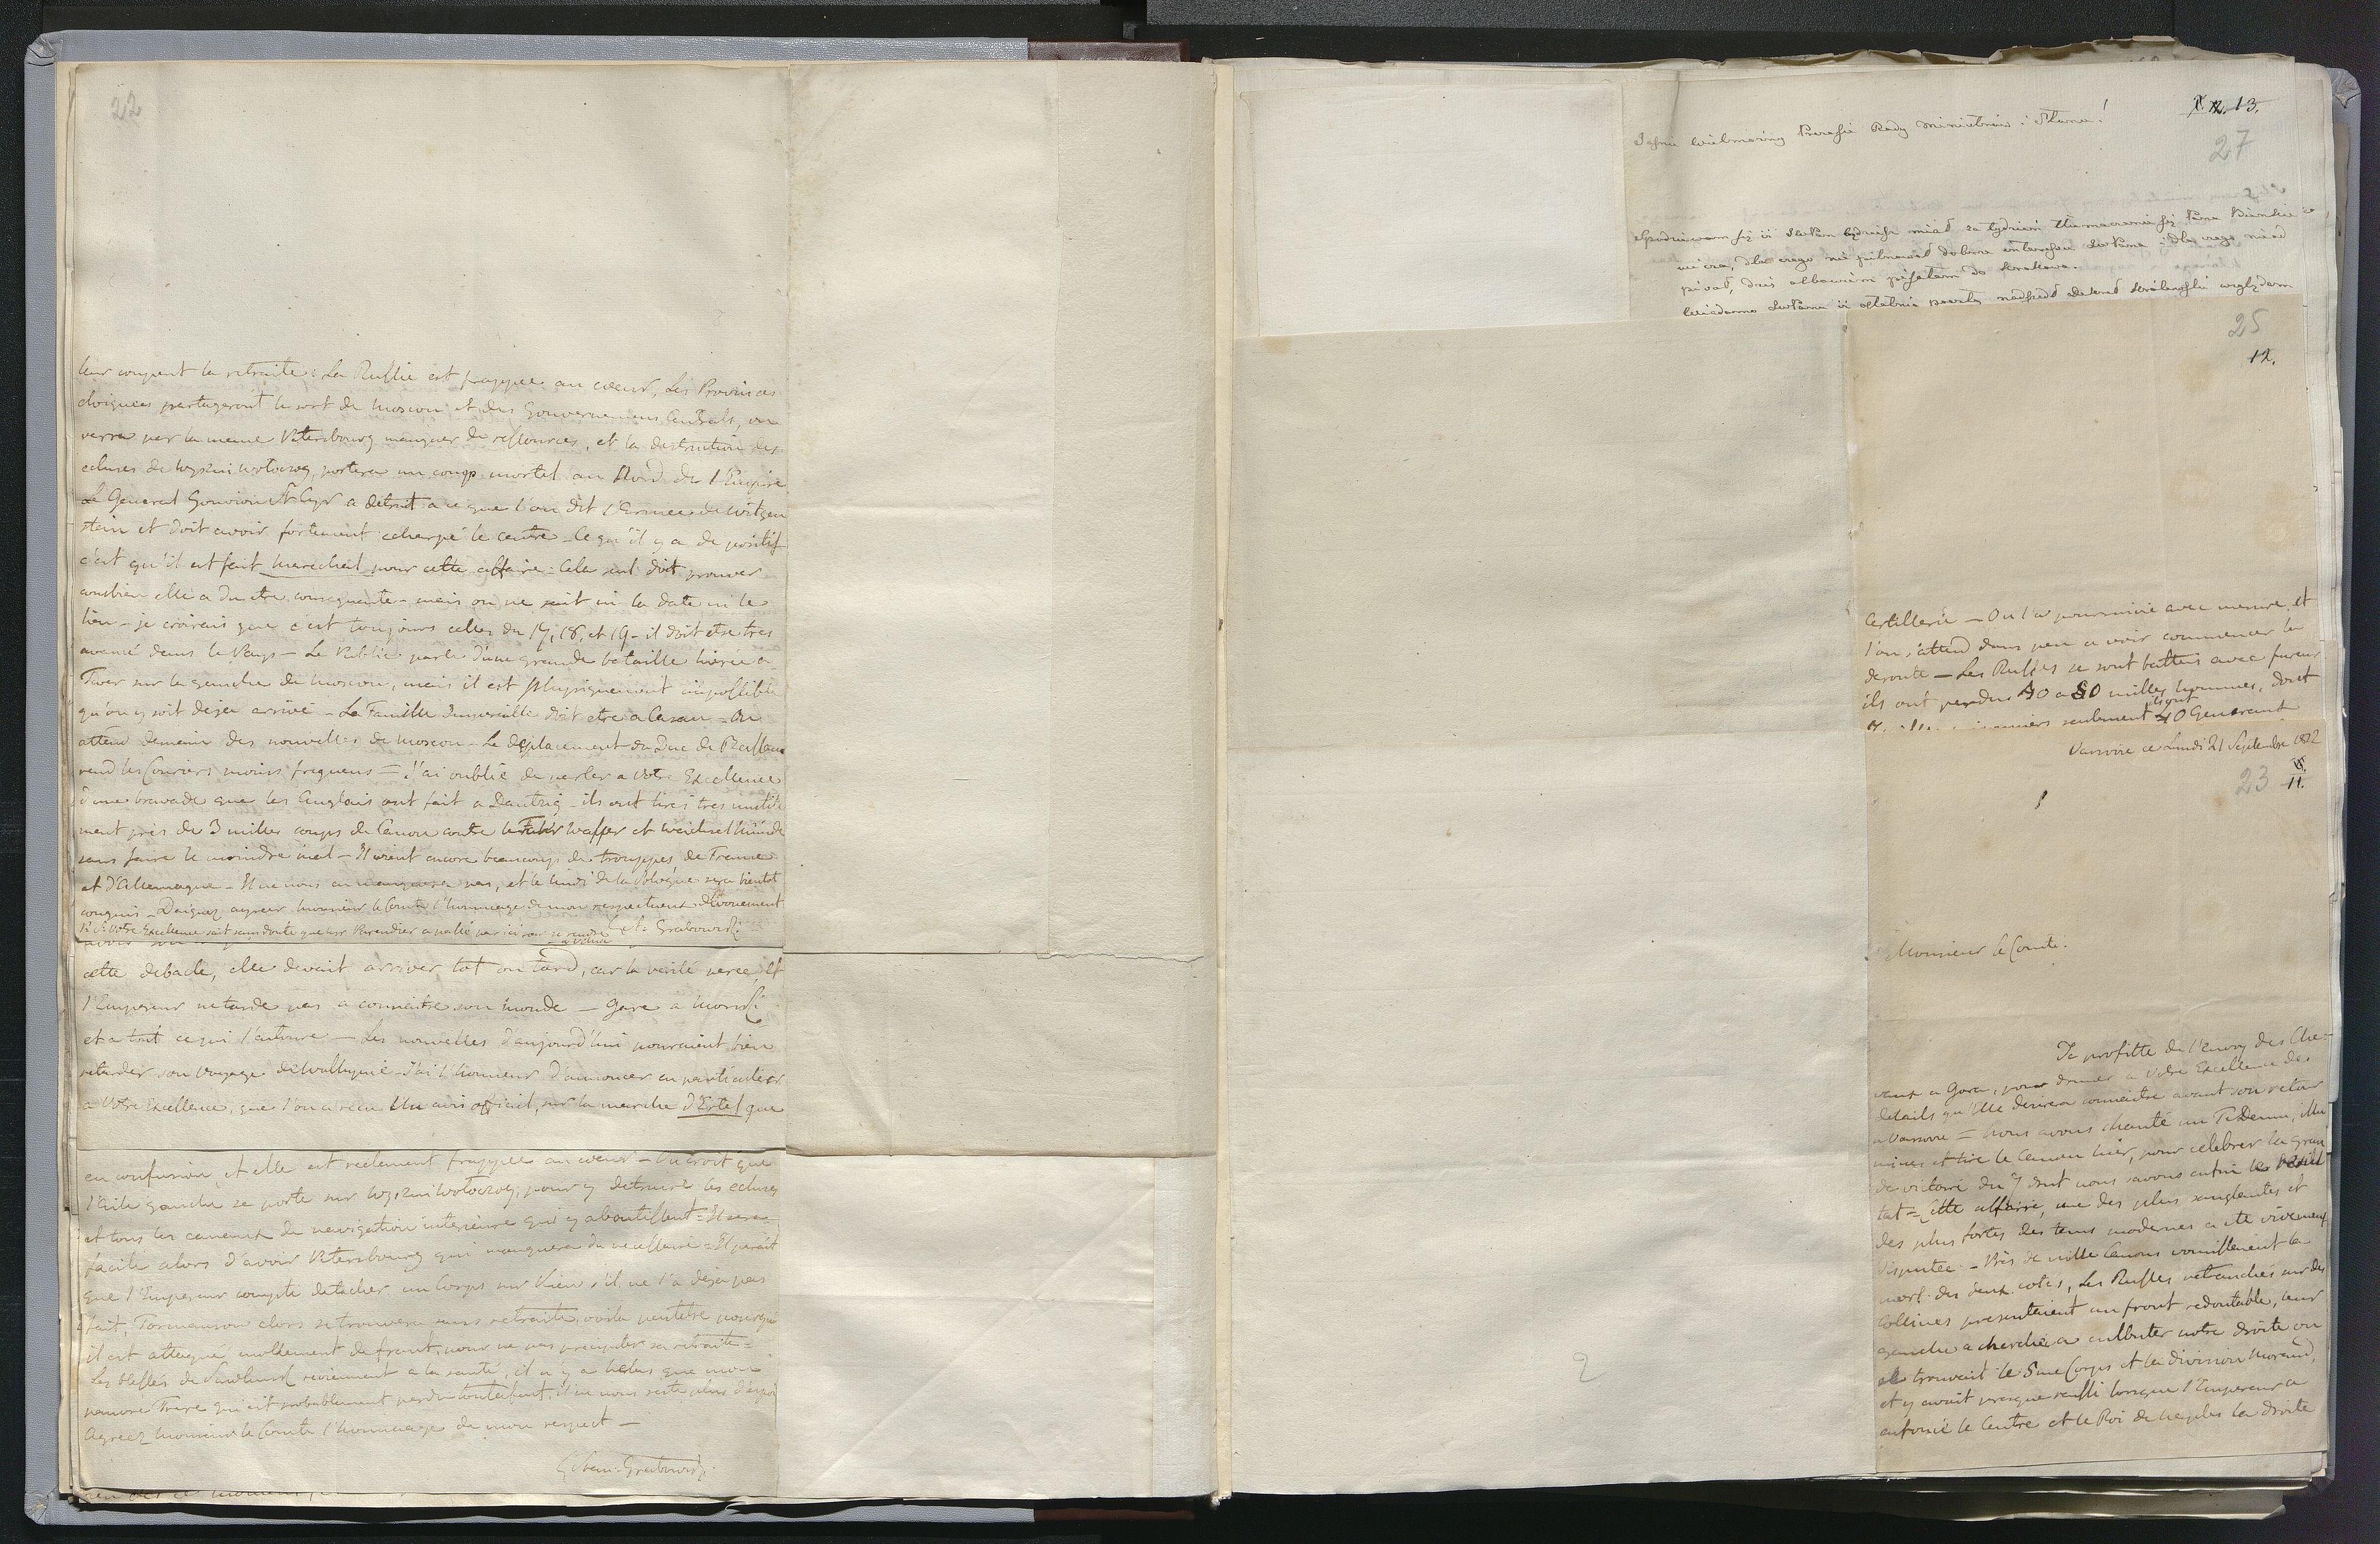 22
leur coupent la retraite: La Russie est frappée au coeur, Les Provinces
eloignées partageront le sort de Moscou et des Gouvernemens Centrals, on
verra par la meme Petersbourg manquer de ressources, et la destruction des
ecluses de Wyszni Wołoczog, portera un coup mortel au Nord de l'Empire
Le General Gouvion St Cyr a detruit a ce que l'on dit l'Armée de Witgen
stein et doit avoir fortement echarpé le centre - Ce qu'il y a de positif
c'est qu'il est fait Marechal pour cette affaire - Cela seul doit prouver
combien elle a du etre consequente - mais on ne sait ni la date ni le
lieu - je croirais que c'est toujours celles du 17, 18, et 19 - il doit etre tres
avancé dans le Pays - Le Public parle d'une grande bataille livrée a
Twer sur la gauche de Moscou, mais il est physiquement impossible
qu'on y soit deja arrivé - La Famille Imperialle doit etre a Casan - On
attend demain des nouvelles de Moscou - Le deplacement du Duc de Bassano
rend les Couriers moins frequens = J'ai oublié de parler a Votre Excellence
d'une bravade que les Anglais ont fait a Dantzig - ils ont tirés tres inutile
ment près de 3 milles coups de Canon contre le Fahr Wasser et Weichselmünde
sans faire le moindre mal - Il vient encore beaucoup de trouppes de France
et d'Allemagne - Il ne nous en manquera pas, et le midi de la Pologne sera bientot
conquis - Daignez agreer Monsieur le Comte l'hommage de mon respectueux devouement
Votre Excellence sait sans doute que Mr Parandier a passé par ici pour se rendre a Vilna Et. Grabowski
cette debacle, elle devait arriver tot ou tard, car la verité perce, et
l'Empereur ne tarde pas a connaitre son monde - Gare a Morski
et a tout ce qui l'entoure - Les nouvelles d'aujourd'hui pourraient bien
retarder son voyage de Wolhynie - J'ai l'honneur d'annoncer en particulier
a Votre Excellence, que l'on a recu Un avis officiel, sur la marche d'Ertel que
en confusion, et elle est reelement frappée au coeur - On croit que
l'aile gauche se porte sur Wyszni Wołoczog, pour y detruire les ecluses
et tous les canaux de navigation interieure qui y aboutissent = Il sera
facile alors d'avoir Petersbourg qui manquera du necessaire = Il parait
que l'Empereur compte detacher un Corps sur Kiew s'il ne l'a deja pas
fait, Tormansow alors se trouvera sans retraite, voila peutetre pourquoi
il est attaqué mollement de front, pour ne pas precipiter sa retraite =
Les blessés de Smolensk reviennent a la santé, il n'y a helas que mon
pauvre Frere qui est probablement perdu tout a fait, il ne nous reste plus d'espoir
Agreez Monsieur le Comte l'hommage de mon respect -
Etien. Grabowski.
13.
27
Jaśnie Wielmożny Prezesie Rady Ministrów i Stanu!
25
12.
Artillerie - On l'a poursuivie avec mesure, et
l'on s'attend dans peu a voir commencer la
deroute - Les Russes se sont battus avec fureur
ils ont perdus 40 a 50 milles hommes, dont
seulement 40 Generaux
Varsovie ce Lundi 21 Septembre 1812
23 11.
Monsieur le Comte.
Je profitte de l'envoy des Che=
vaux a Gora, pour donner a Votre Excellence des
details qu'Elle desirera connaitre avant son retour
a Varsovie = Nous avons chanté un Te Deum, illu
minés et tiré le Canon hier, pour celebrer la gran
de victoire du 7 dont nous savons enfin le résul
tat = Cette affaire, une des plus sanglantes et
des plus fortes des tems modernes a eté vivement
disputée - Près de mille Canons vomissaient la
mort des deux cotés, Les Russes retranchés sur des
Collines presentaient un front redoutable, leur
gauche a cherché a culbuter notre droite ou
se trouvait le 5me Corps et la division Morand,
et y avait presque reussi lorsque l'Empereur a
enfoncé le Centre et le Roi de Naples la droite
2